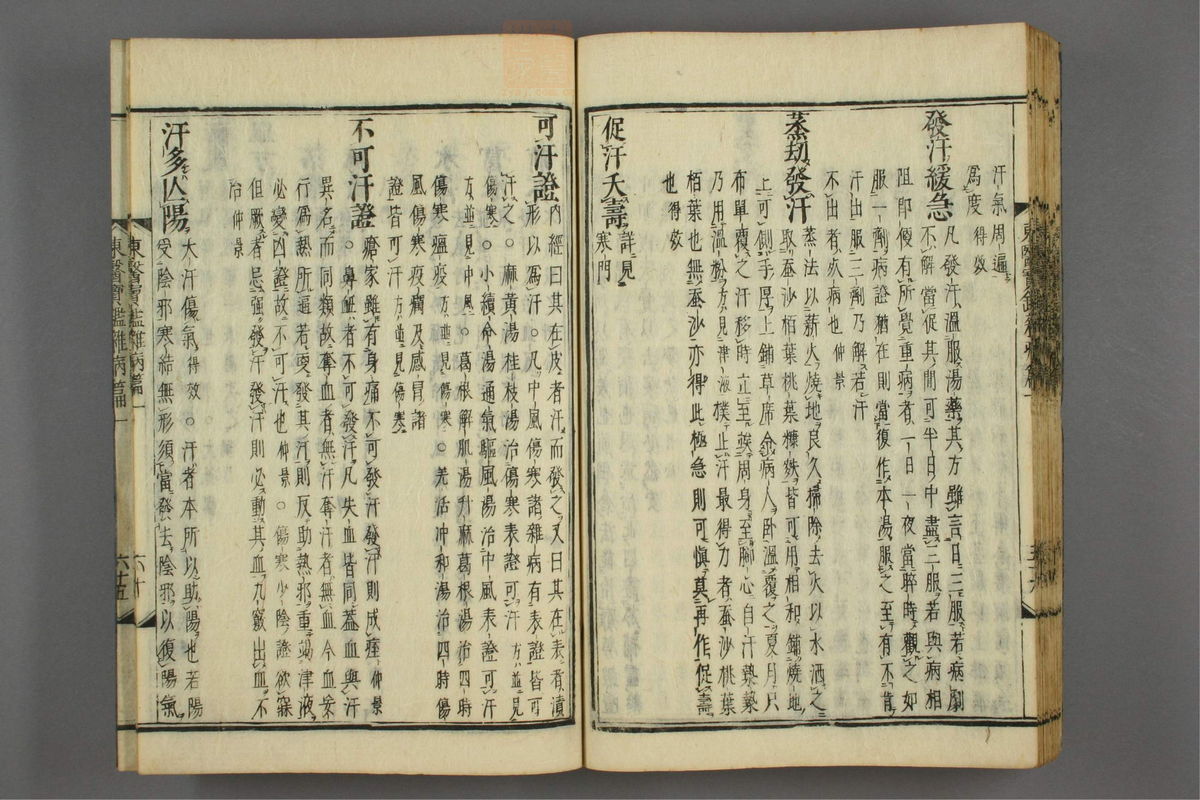 汗氣周遍
爲度得效
發汗緩急
凡發汗溫服湯藥其方雖言日三服若病劇
不解當促其間可半日中盡三服若與病相
阻即便有所覺重病者一日一夜當晬時觀之如
服一劑病證猶在則當復作本湯服之至有不肯
汗出服三劑乃解若汗
不出者死病也仲景
蒸劫發汗
蒸法以薪火燒地良久掃除去火以水洒之
取蚕沙栢葉桃葉糠麩皆可用相和鋪燒地
上可側手厚上鋪草席令病人卧溫覆之夏月只
布單覆之汗移時立至俟周身至脚心自汗漐漐
乃用溫粉方見津液撲止汗最得力者蚕沙桃葉
栢葉也無蚕沙亦得此極急則可愼莫再作促壽
也得效
促汗夭壽
詳見
寒門
可汗證
內經曰其在皮者汗而發之又曰其在表者漬
形以爲汗○凡中風傷寒諸雜病有表證皆可
汗之○麻黃湯桂枝湯治傷寒表證可汗方並見
傷寒○小續命湯通氣驅風湯治中風表證可汗
方並見中風○葛根解肌湯升麻葛根湯治四時
傷寒瘟疫方並見傷寒○羌活冲和湯治四時傷
風傷寒疫癘及感冒諸
證皆可汗方並見傷寒
不可汗證
瘡家雖有身痛不可發汗發汗則成痓仲景
○鼻衄者不可發汗凡失血皆同盖血與汗
異名而同類故奪血者無汗奪汗者無血今血妄
行爲熱所逼若更發其汗則反助熱邪重竭津液
必變凶證故不可汗也仲景○傷寒少陰證欲寐
但厥者忌强發汗發汗則必動其血九竅出血不
治仲景
汗多亾陽
大汗傷氣得效○汗者本所以助陽也若陽
受陰邪寒結無形須當發去陰邪以復陽氣
東醫寶鑑雜病篇一
六十五